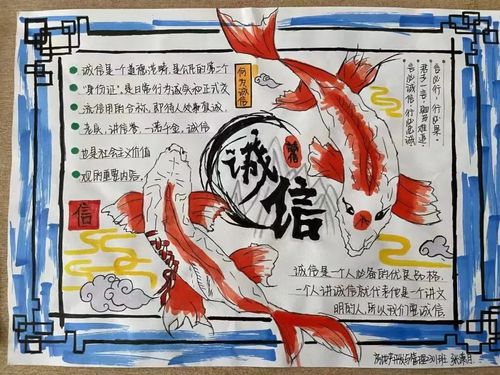 诚信是一个道德范畴,是公民的第二个
"身份证",是日常行为诚实和正式交
流信用的合称,即待人处事真诚、
老实,讲信誉,一诺千金,诚信
也是社会主义价值
观的重要内容。
何为诚信
言必行,行必果。
君子一言,驷马难追
言必诚信,行必忠诚
诚信
信
诚信是一个人必备的优良品格,
一个人讲诚信就代表他是一个讲文
明的人,所以我们要讲诚信